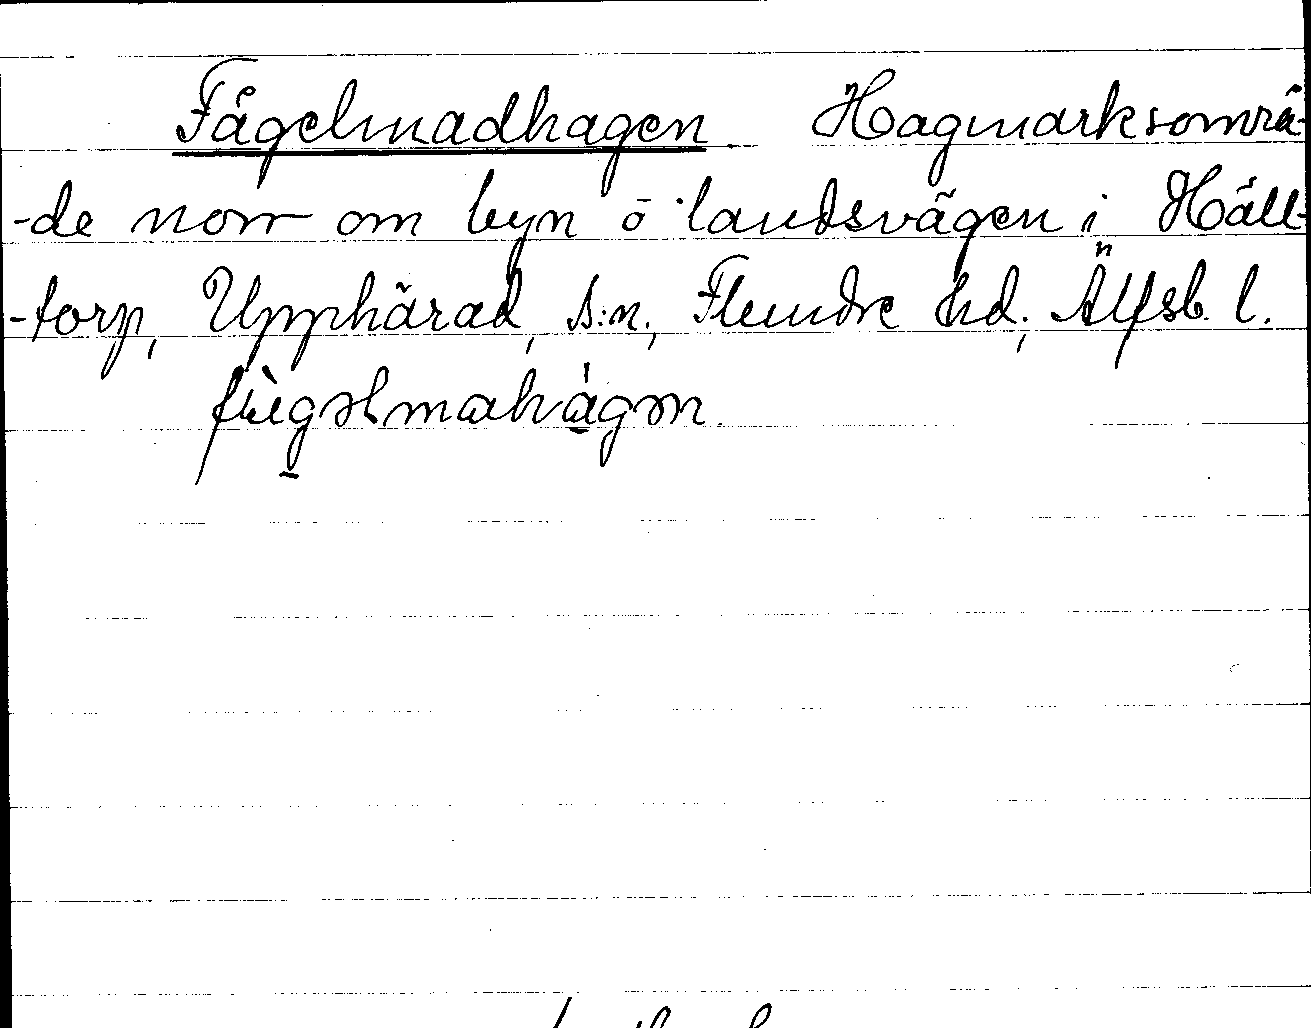 Fågelmadhagen Hagmarksområ-
-de norr om byn ö landsvägen i Häll-
-torp, Upphärad, s:n, Flundre hd., Älfsb. l.